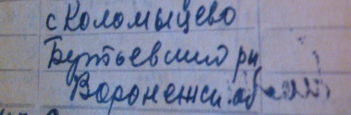 с Коломыцево
Бутьевского рн
Воронежск. области